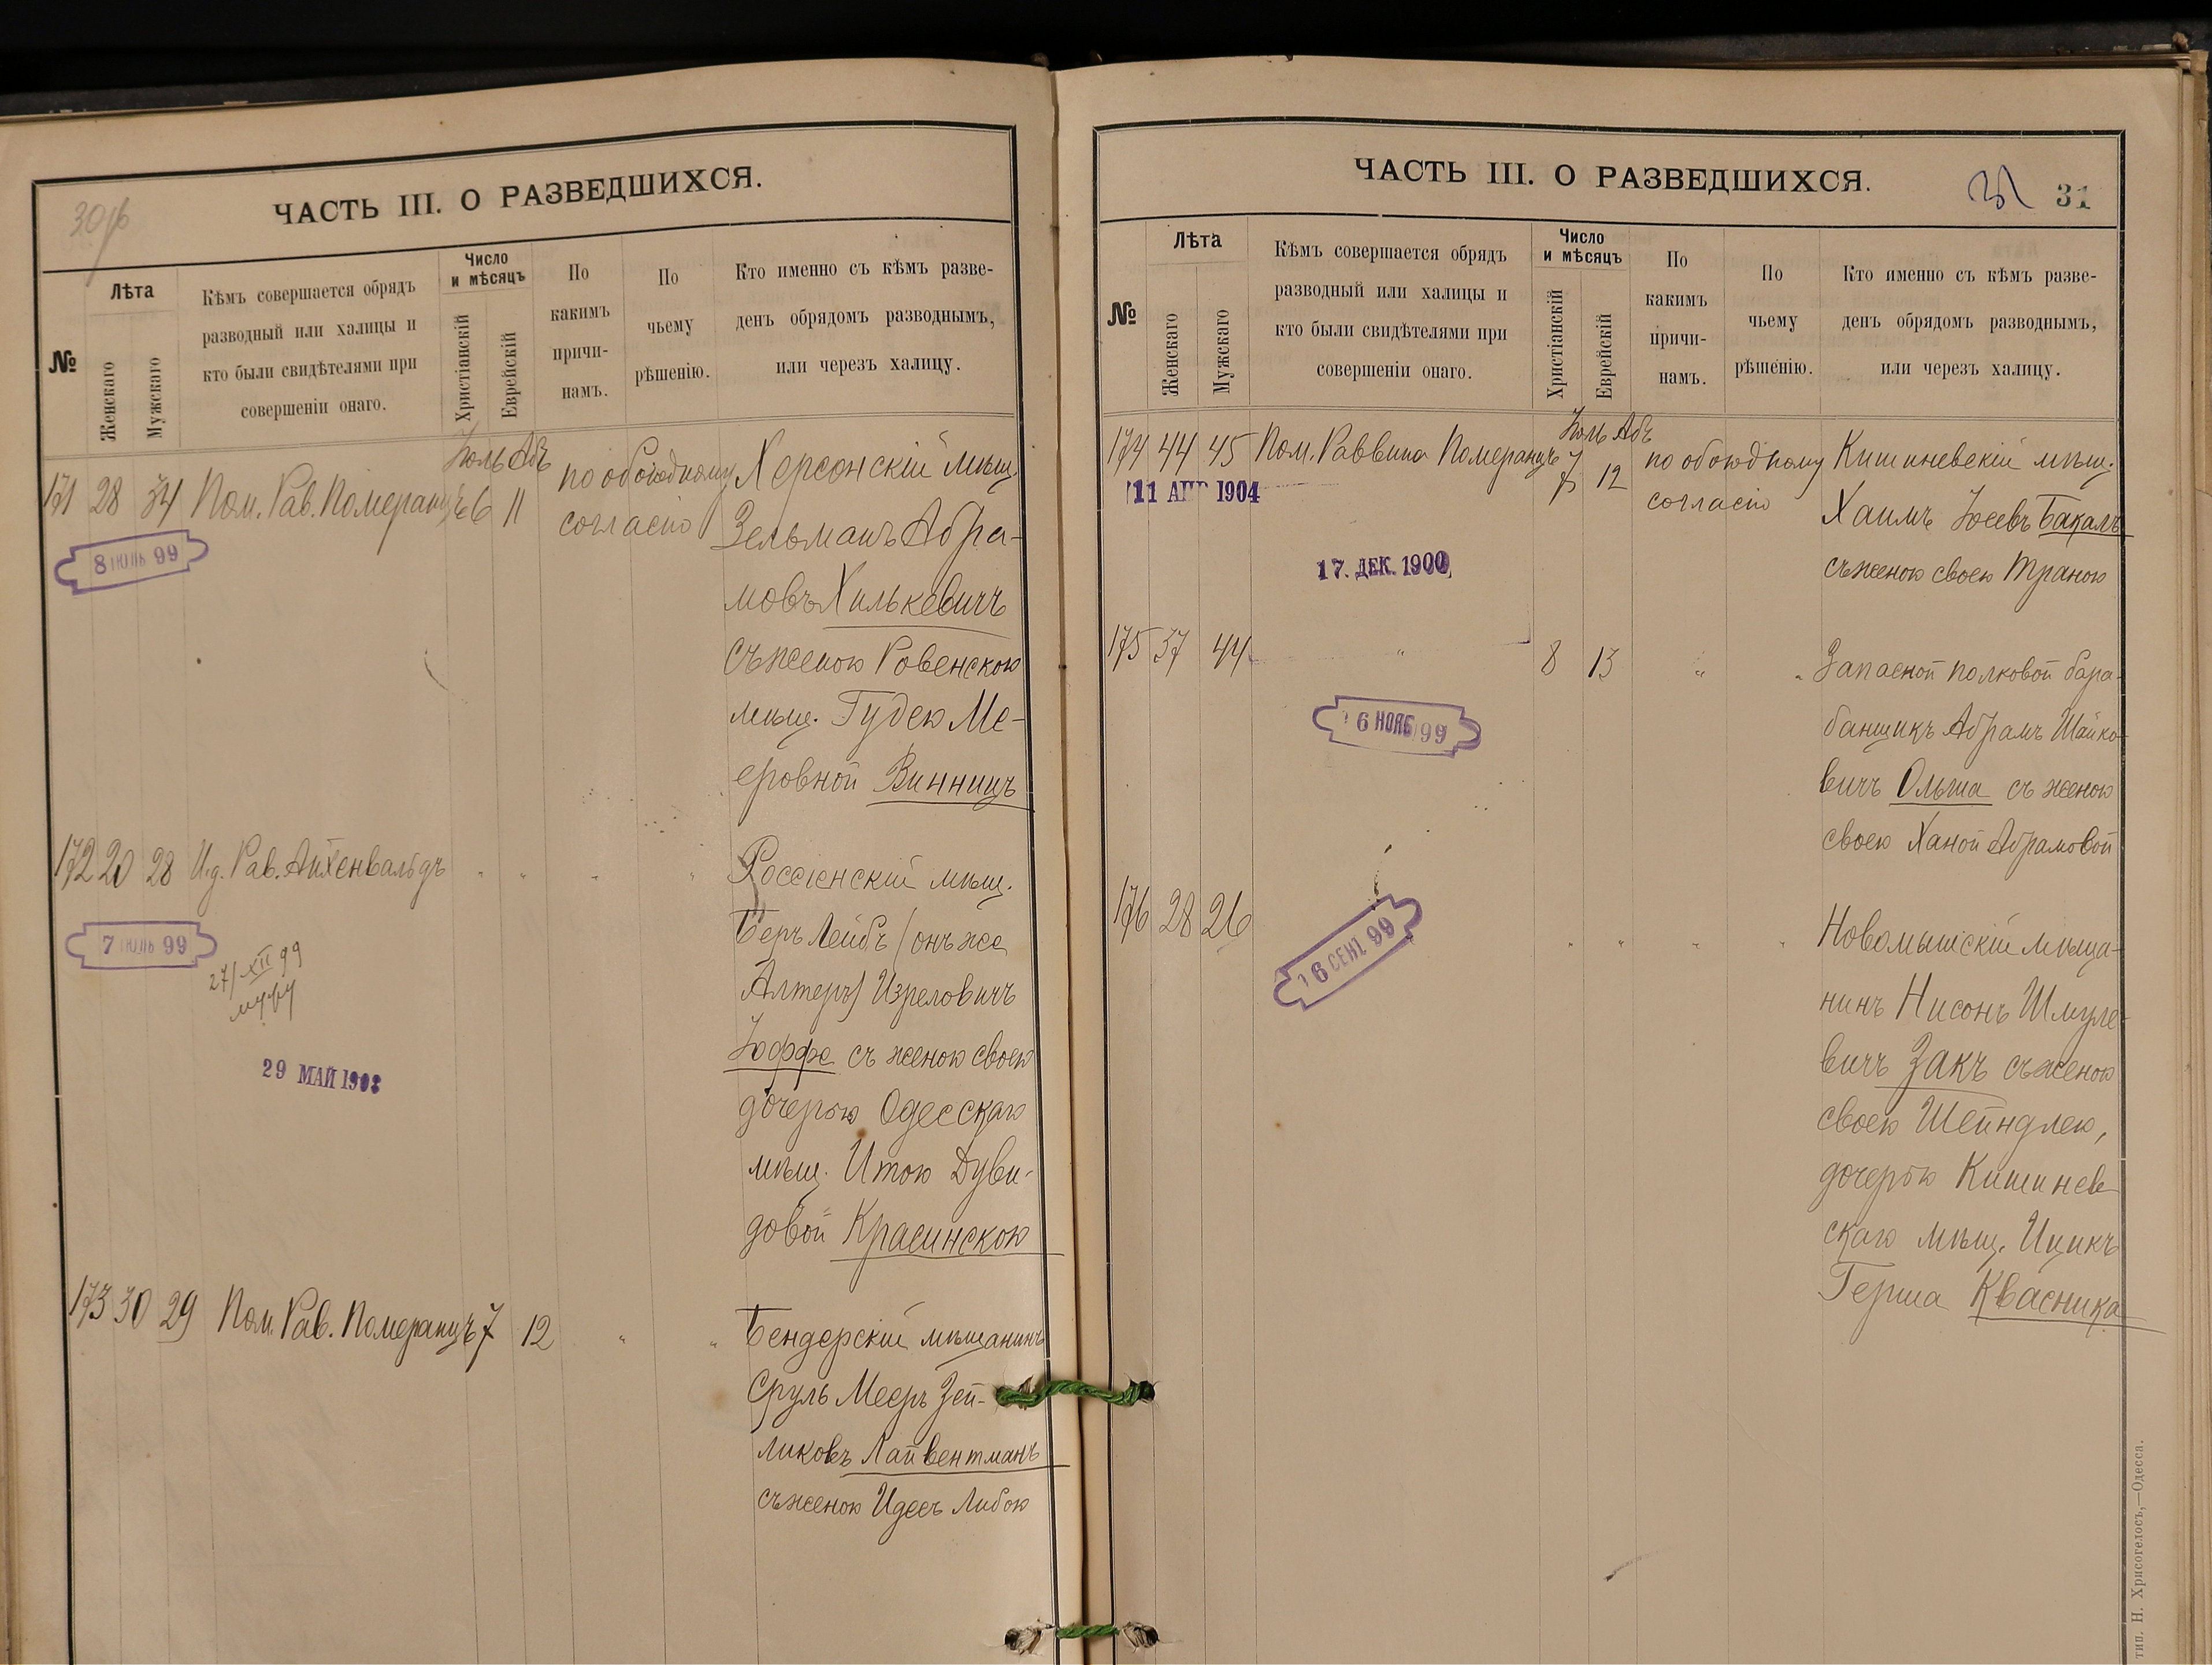 ЧАСТЬ III. О РАЗВЕДШИХСЯ.
№
Лѣта
Женскаго
Мужскаго
Кѣмъ совершается обрядъ
разводный или халицы и
кто были свидѣтелями при
совершеніи онаго.
Число
и мѣсяцъ
Христіанскій
Еврейскій
По
какимъ
причи-
намъ.
По
чьему
рѣшенію.
Кто именно съ кѣмъ разве-
денъ обрядомъ разводнымъ,
или черезъ халицу.
Іюль Абъ
171 28 34 Пом. Рав. Померанцъ 6 11 по обоюдному
согласію
Херсонскій мѣщ.
Зельманъ Абра-
мовъ Хилькевичъ
съ женою Ровенскою
мѣщ. Гудею Ме-
еровной Винницъ
8 ІЮЛЬ 99
172 20 28 И.д. Рав. Айхенвальдъ " " " "
Россіенскій мѣщ.
Беръ Лейбъ (онъ же
Алтеръ) Изреловичъ
Іоффе съ женою своею
дочерью Одесскаго
мѣщ. Итою Дуви-
довой Красинскою
7 ІЮЛЬ 99
27/XII 99
29 МАЙ 1903
173 30 29 Пом. Рав. Померанцъ 7 12 " "
Бендерскій мѣщанинъ
Сруль Мееръ Зей-
ликовъ Лайвентманъ
съ женою Идесъ Либою
ЧАСТЬ III. О РАЗВЕДШИХСЯ.
31
№
Лѣта
Женскаго
Мужскаго
Кѣмъ совершается обрядъ
разводный или халицы и
кто были свидѣтелями при
совершеніи онаго.
Число
и мѣсяцъ
Христіанскій
Еврейскій
По
какимъ
причи-
намъ.
По
чьему
рѣшенію.
Кто именно съ кѣмъ разве-
денъ обрядомъ разводнымъ,
или черезъ халицу.
Іюль Абъ
174 44 45 Пом. Раввина Померанцъ 7 12 по обоюдному
согласію
Кишиневскій мѣщ.
Хаимъ Іосевъ Бакалъ
съ женою своею Траною
11 АПР 1904
17. ДЕК. 1900
175 37 44 " 8 13 " "
Запасной полковой бара-
банщикъ Абрамъ Шайко-
вичъ Ольша съ женою
своею Ханой Абрамовой
6 НОЯБ 99
176 28 26 " " " "
Новомышскій мѣща-
нинъ Нисонъ Шмуле-
вичъ Закъ съ женою
своею Шейндлею,
дочерью Кишинев-
скаго мѣщ. Ицикъ
Герша Квасника
16 СЕНТ 99
тип. Н. Хрисогелосъ,—Одесса.